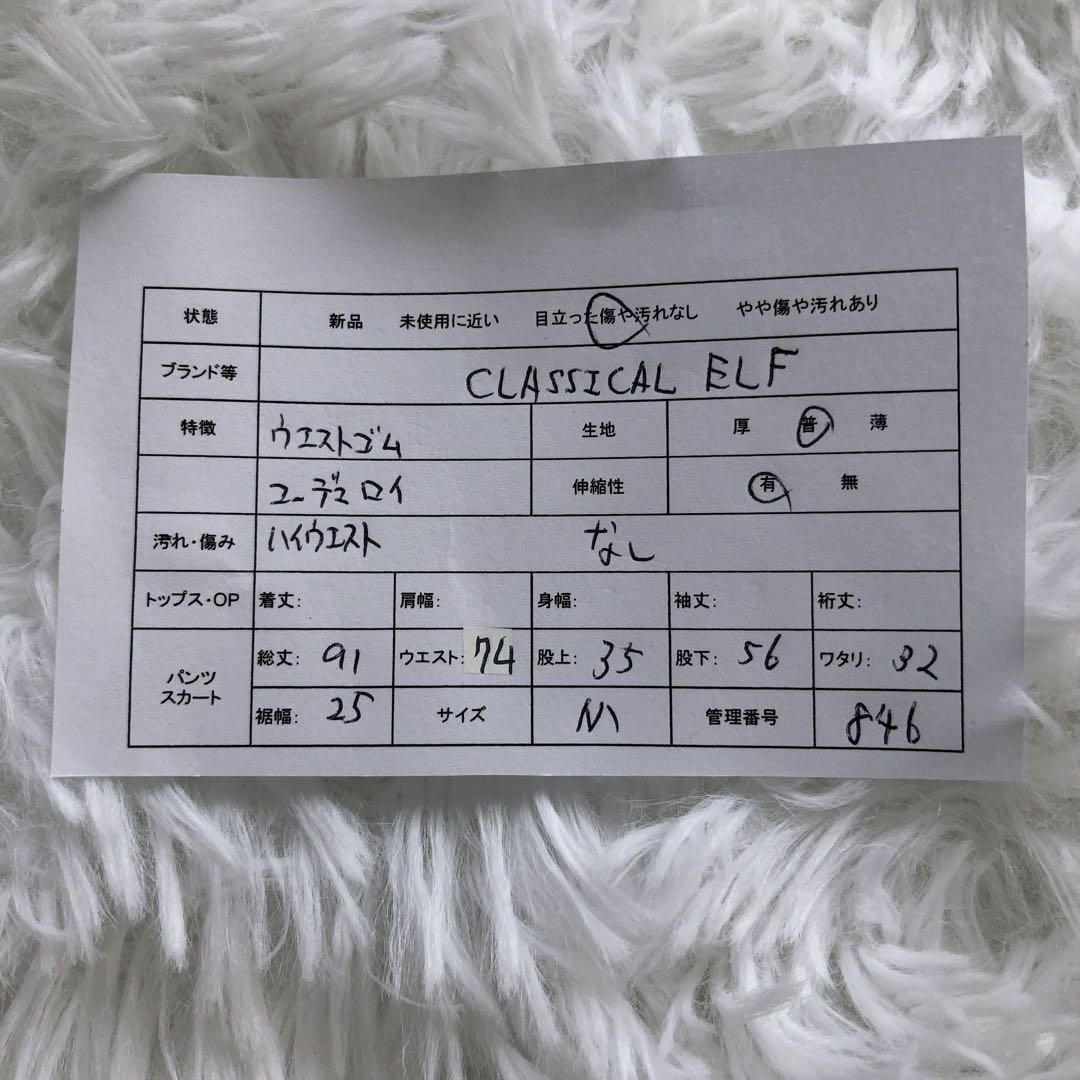 状態 新品 未使用に近い 目立った傷や汚れなし やや傷や汚れあり
ブランド等 CLASSICAL ELF
特徴 ウエストゴム 生地 厚 普 薄
コーデュロイ 伸縮性 有 無
汚れ・傷み ハイウエスト なし
トップス・OP 着丈: 肩幅: 身幅: 袖丈: 裄丈:
パンツ スカート 総丈: 91 ウエスト: 74 股上: 35 股下: 56 ワタリ: 32
裾幅: 25 サイズ M 管理番号 846